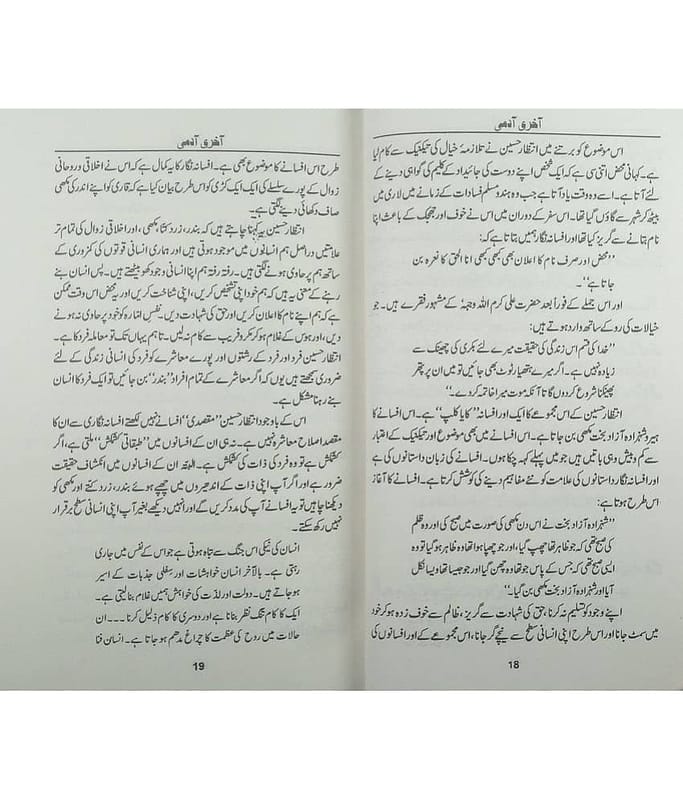 آخری آدمی
اس موضوع کو برتنے میں انتظار حسین نے تلازمۂ خیال کی تیکنیک سے کام لیا
ہے۔ کہانی محض اتنی سی ہے کہ ایک شخص اپنے دوست کی جائیداد کے کلیم کی گواہی دینے کے
لئے آتا ہے۔ اسے وہ وقت یاد آتا ہے جب وہ ہندو مسلم فسادات کے زمانے میں لاری میں
بیٹھ کر شہر سے گاؤں گیا تھا۔ اس سفر کے دوران میں اس نے خوف اور جھجک کے باعث اپنا
نام بتانے سے گریز کیا تھا اور افسانہ نگار ہمیں بتاتا ہے کہ:
”محض اور صرف نام کا اعلان بھی کبھی کبھی انا الحق کا نعرہ بن
جاتا ہے“۔
اور اس جملے کے فوراً بعد حضرت علی کرم اللہ وجہہٗ کے مشہور فقرے ہیں۔ جو
خیالات کی رو کے ساتھ وارد ہوتے ہیں:
”خدا کی قسم اس زندگی کی حقیقت میرے لئے بکری کی چھینک سے
زیادہ نہیں ہے۔ اگر میرے ہتھیار ٹوٹ بھی جائیں تو میں ان پر پتھر
پھینکنا شروع کر دوں گا تا آنکہ موت میرا خاتمہ کر دے۔“
انتظار حسین کے اس مجموعے کا ایک اور افسانہ ”کایا کلپ“ ہے۔ اس افسانے کا
ہیرو شہزادہ آزاد بخت مکھی بن جاتا ہے۔ اس افسانے میں بھی موضوع اور تیکنیک کے اعتبار
سے کم و بیش وہی باتیں ہیں جو میں پہلے کہہ چکا ہوں۔ افسانے کی زبان داستانوں کی ہے
اور افسانہ نگار داستانوں کی علامت کو نئے مفاہیم دینے کی کوشش کرتا ہے۔ افسانے کا آغاز
اس طرح ہوتا ہے:
”شہزادہ آزاد بخت نے اس دن مکھی کی صورت میں صبح کی اور وہ ظلم
کی صبح تھی کہ جو ظاہر تھا چھپ گیا، اور جو چھپا ہوا تھا وہ ظاہر ہو گیا تو وہ
ایسی صبح تھی کہ جس کے پاس جو تھا وہ چھن گیا اور جو جیسا تھا ویسا نکل
آیا اور شہزادہ آزاد بخت مکھی بن گیا۔“
اپنے وجود کو تسلیم نہ کرنا، حق کی شہادت سے گریز، ظالم سے خوف زدہ ہو کر خود
میں سمٹ جانا اور اس طرح اپنی انسانی سطح سے نیچے گر جانا، اس مجموعے کے اور افسانوں کی
18
آخری آدمی
طرح اس افسانے کا موضوع بھی ہے۔ افسانہ نگار کا یہ کمال ہے کہ اس نے اخلاقی و روحانی
زوال کے پورے سلسلے کی ایک ایک کڑی کو اس طرح بیان کیا ہے کہ قاری کو اپنے اندر کی مکھی
صاف دکھائی دینے لگتی ہے۔
انتظار حسین یہ کہنا چاہتے ہیں کہ بندر، زرد کتا، مکھی، اور اخلاقی زوال کی تمام تر
علامتیں دراصل ہم انسانوں میں موجود ہوتی ہیں اور ہماری انسانی قوتوں کی کمزوری کے
ساتھ ہم پر حاوی ہونے لگتی ہیں۔ رفتہ رفتہ ہم اپنا انسانی وجود کھو بیٹھتے ہیں۔ پس انسان بنے
رہنے کے معنی یہ ہیں کہ ہم خود اپنی تشخیص کریں، اپنی شناخت کریں اور یہ محض اس وقت ممکن
ہے کہ ہم اپنے نام کا اعلان کریں اور حق کی شہادت دیں۔ نفس امّارہ کو خود پر حاوی نہ ہونے
دیں، اور ہوس کے غلام ہو کر مکر و فریب سے کام نہ لیں۔ تا ہم یہاں تک تو معاملہ فرد کا ہے۔
انتظار حسین فرد اور فرد کے رشتوں اور پورے معاشرے کو فرد کی انسانی زندگی کے لئے
ضروری سمجھتے ہیں یوں کہ اگر معاشرے کے تمام افراد ”بندر“ بن جائیں تو ایک فرد کا انسان
بنے رہنا مشکل ہے۔
اس کے باوجود انتظار حسین ”مقصدی“ افسانے نہیں لکھتے افسانہ نگاری سے ان کا
مقصد اصلاح معاشرہ نہیں ہے۔ نہ ہی ان کے افسانوں میں ”طبقاتی کشمکش“ ملتی ہے، اگر
کشمکش ہے تو وہ فرد کی ذات کی کشمکش ہے۔ البتہ ان کے افسانوں میں انکشاف حقیقت
ضرور ہے اور اگر آپ اپنی ذات کے اندھیروں میں چھپے ہوئے بندر، زرد کتے اور مکھی کو
دیکھنا چاہیں تو یہ افسانے آپ کی مدد کریں گے اور انہیں دیکھے بغیر آپ اپنی انسانی سطح برقرار
نہیں رکھ سکتے۔
انسان کی نیکی اس جنگ سے تباہ ہوتی ہے جو اس کے نفس میں جاری
رہتی ہے۔ بالآخر انسان خواہشات اور سفلی جذبات کے اسیر
ہو جاتے ہیں۔ دولت اور لذت کی خواہش ہمیں غلام بنا لیتی ہے۔
ایک کا کام تنگ نظر بنانا ہے اور دوسری کا کام ذلیل کرنا ۔۔۔ ان
حالات میں روح کی عظمت کا چراغ مدھم ہو جاتا ہے۔ انسان فنا
19